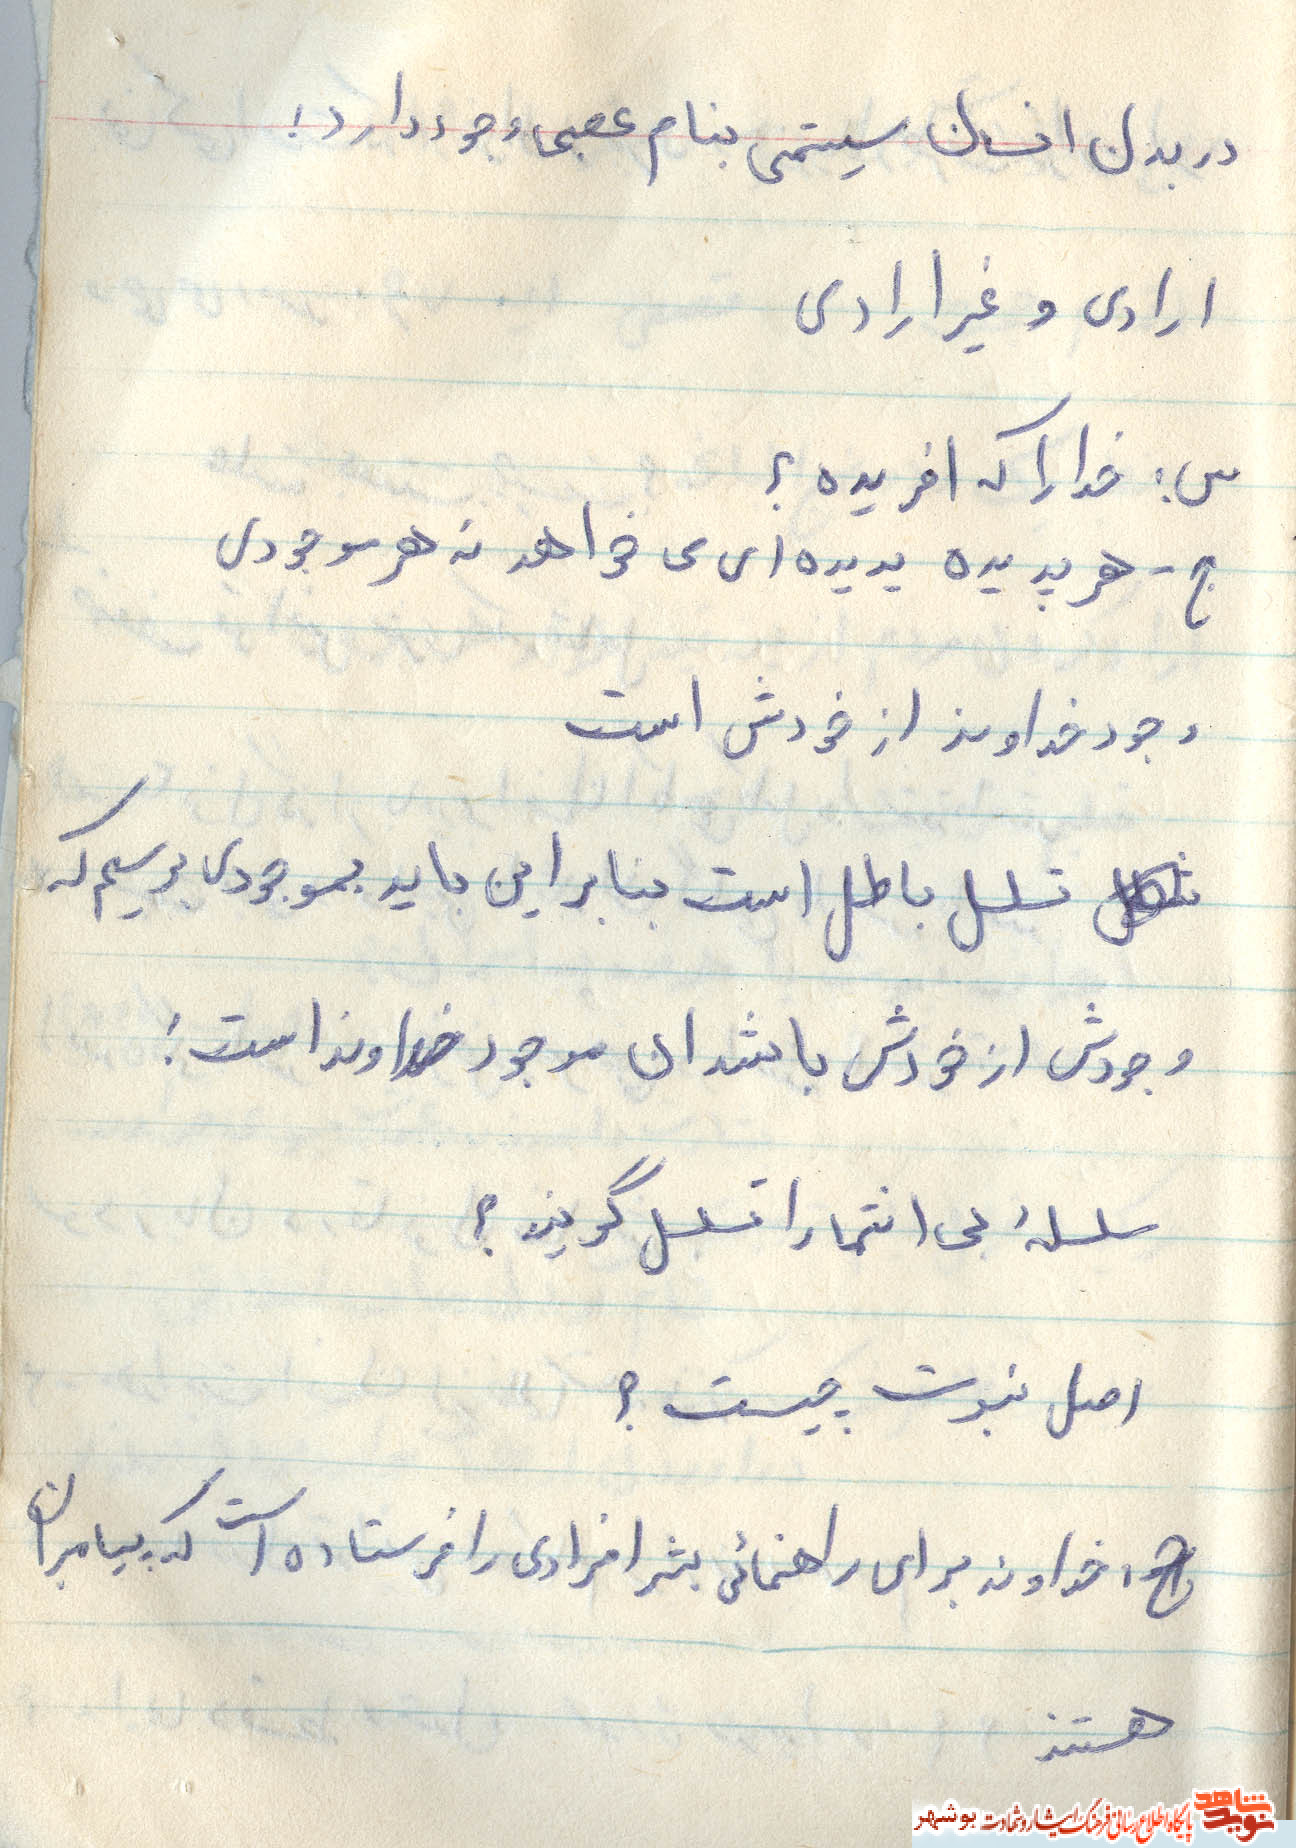 در بدن انسان سیستمی بنام عصبی وجود دارد!
ارادی و غیر ارادی
س: خدا را که افریده ؟
ج - هر پدیده پدیده ای می خواهد نه هر موجودی
وجود خداوند از خودش است
تسلسل باطل است بنابراین باید بموجودی برسیم که
وجودش از خودش باشد ان موجود خداوند است!
سلسلۀ بی انتها را تسلسل گویند ؟
اصل نبوت چیست ؟
ج: خداوند برای راهنمائی بشر افرادی را فرستاده است که پیامبران
هستند
نوید شاهد
پایگاه اطلاع رسانی فرهنگ ایثار و شهادت بوشهر